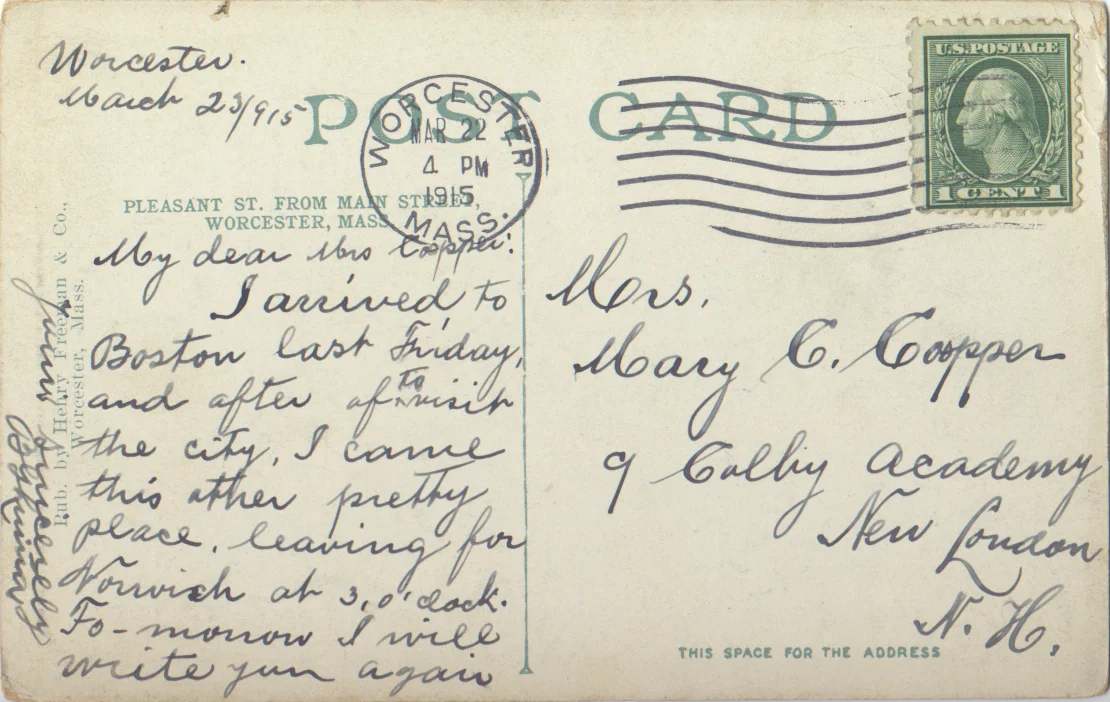 Worcester.
March 23/915
POST CARD
WORCESTER
MAR 22
4 PM
1915
MASS.
U.S. POSTAGE
1 CENT 1
PLEASANT ST. FROM MAIN STREET,
WORCESTER, MASS.
My dear Mrs Copper:
I arrived to
Boston last Friday,
and after of to visit
the city, I came
this other pretty
place, leaving for
Norwich at 3, o'clock.
To-morrow I will
write you again
Yours sincerely
Pub. by Henry Freeman & Co.,
Worcester, Mass.
Mrs.
Mary C. Coopper
9 Colby Academy
New London
N. H.
THIS SPACE FOR THE ADDRESS